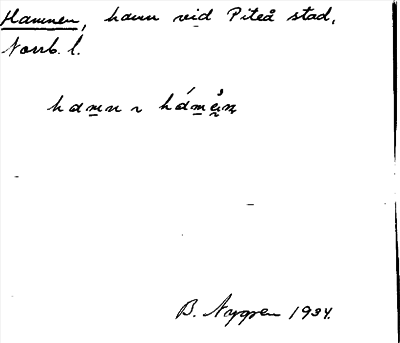 Hamnen, hamn vid Piteå stad,
Norrb. l.
hamn ~ hámə̊n
B. Nygren 1934.